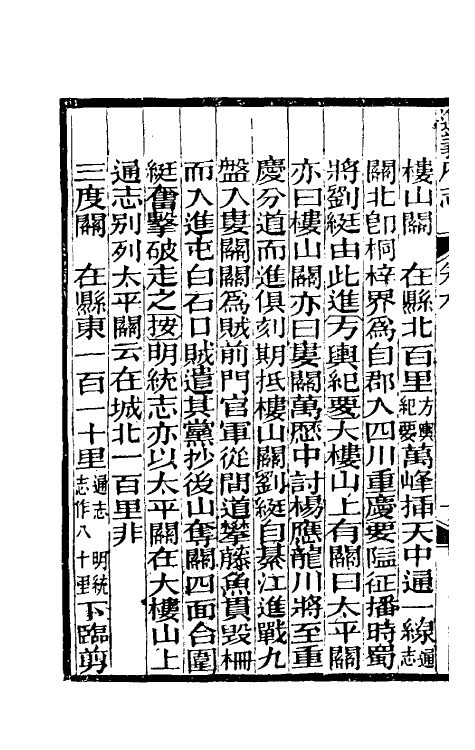 樓山關　在縣北百里方輿紀要萬峰揷天中通一線通志
關北卽桐梓界爲自郡入四川重慶要隘征播時蜀
將劉綎由此進方輿紀要大樓山上有關曰太平關
亦曰樓山關亦曰婁關萬歷中討楊應龍川將至重
慶分道而進俱刻期抵樓山關劉綎自綦江進戰九
盤入婁關關爲賊前門官軍從間道攀藤魚貫毀柵
而入進屯白石口賊遣其黨抄後山奪關四面合圍
綎奮擊破走之按明統志亦以太平關在大樓山上
通志別列太平關云在城北一百里非
三度關　在縣東一百一十里通志明統志作八十里下臨剪